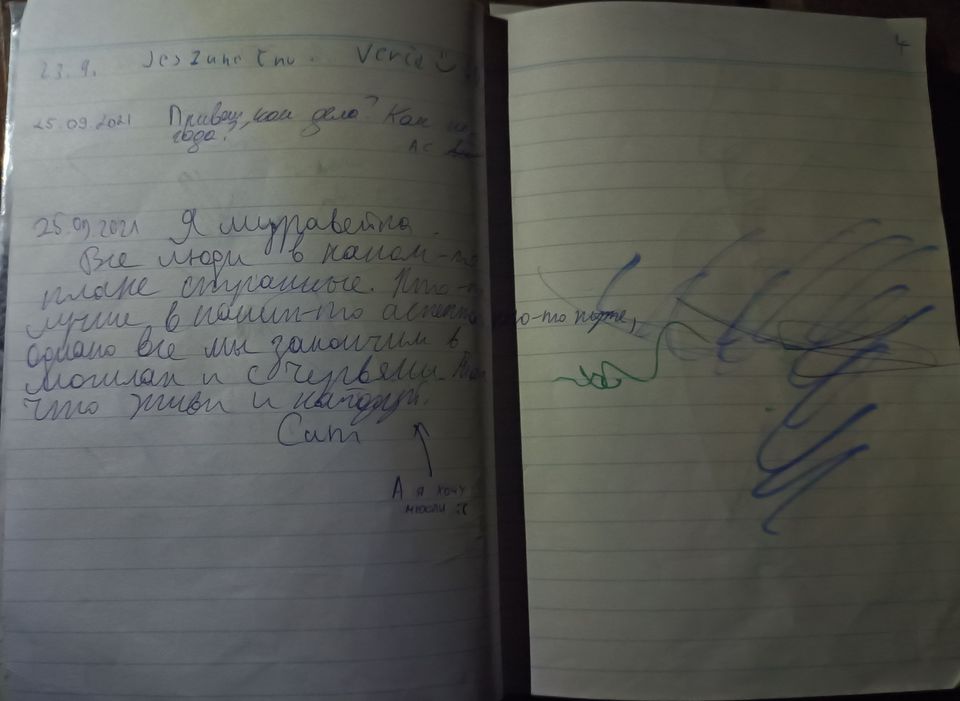 4
23.9.
25.09.2021 Привет, как дела? Как
года?
АС
25.09.2021 Я муравейка.
Все люди в каком-то
плане странные. Кто-
лучше в каким-то аспекте, кто-то хуже,
однако все мы закончим в
могилах и с червями.
что живи и
Сат
А я хочу
мюсли :(